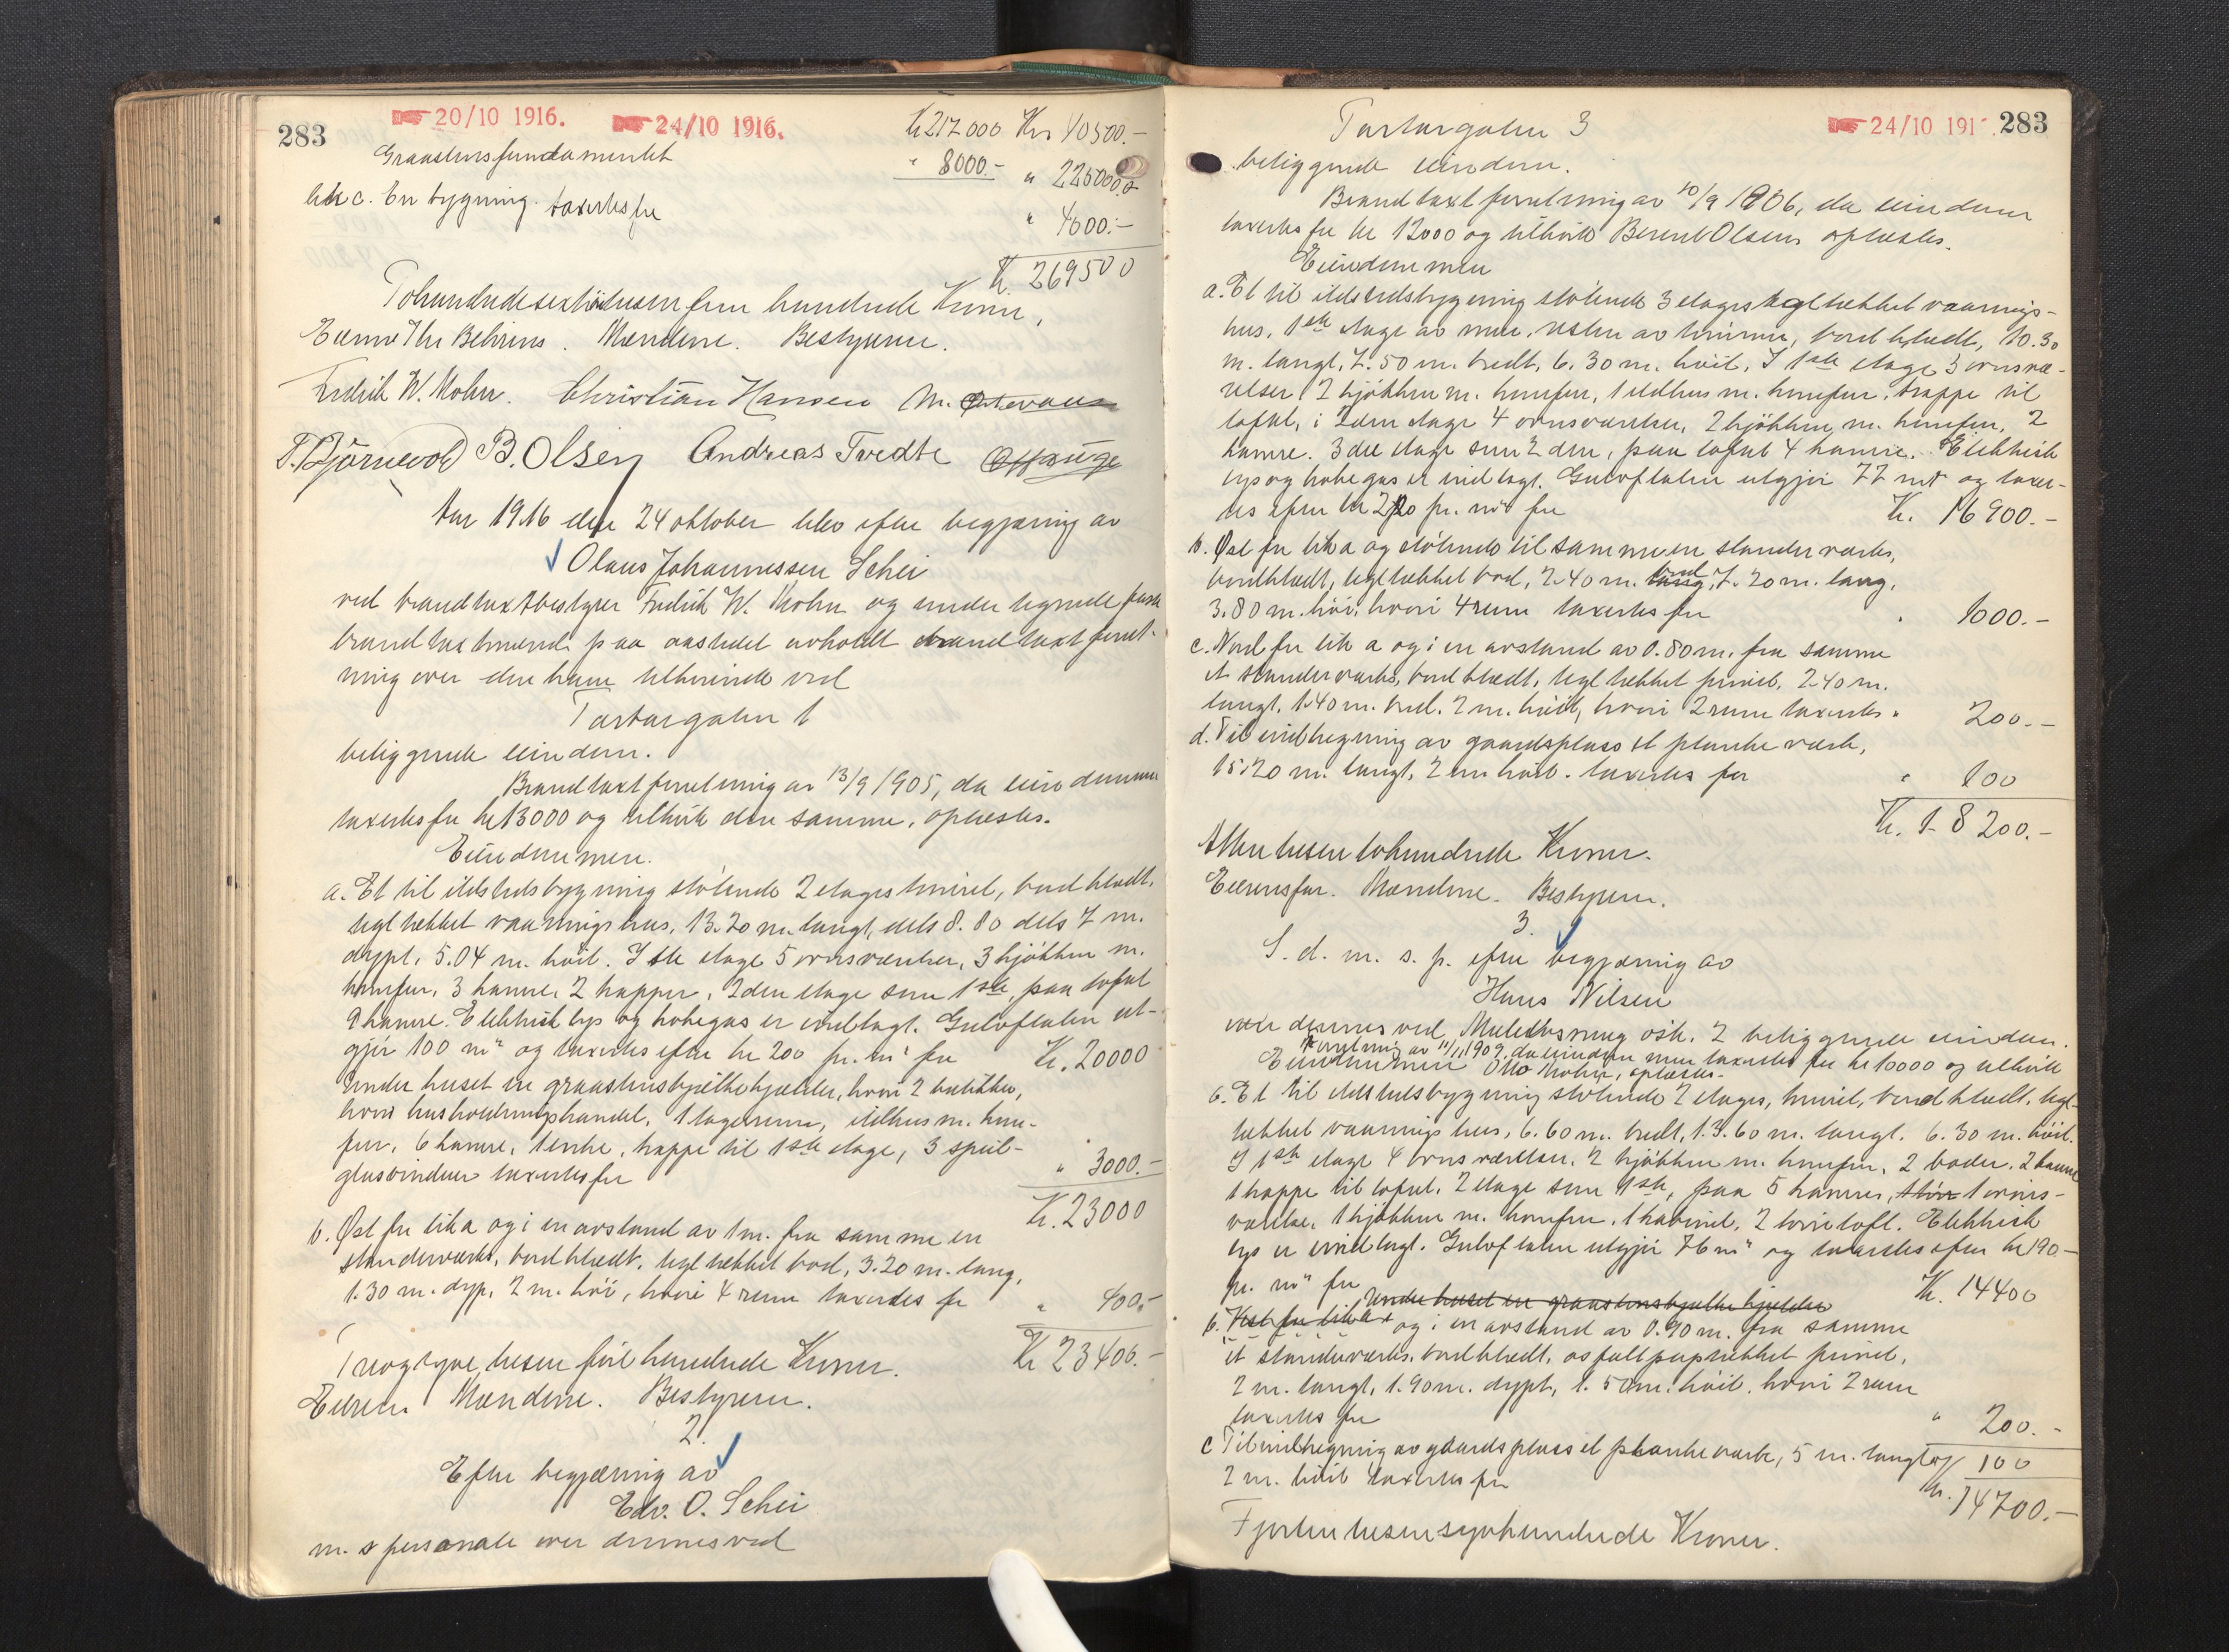 283
20/10 1916.
24/10 1916.
Kr 217000 Kr 40500.-
Graastensfundamentet " 8000.- " 225000.-
litr c. En bygning taxertes for " 4000.-
Kr. 269500
Tohundredesextinitusen fem hundrede Kroner,
Mændene. Bestyreren.
Fredrik W. Mohn. Christian Hansen M.
B. Olsen Andreas Tvedte
Aar 1916 den 24 oktober blev efter begjæring av
Olaus Johannessen Schei
ved brandtaxtbestyrer Fredrik W. Mohn og undertegnede faste
brandtaxtmænd paa aastedet avholdt brandtaxtforret-
ning over den ham tilhørende ved
Tartargaten 1
beliggende eiendom.
Brandtaxtforretning av 13/9 1905, da eiendommen
taxertes for kr 13000 og tilhørte den samme, oplæstes.
Eiendommen.
a. Et til ildstedsbygning støtende 2 etages tømret, bordklædt,
tegltækket vaaningshus, 13.20 m. langt, dels 8.80 dels 7 m.
dypt, 5.04 m. høit. I 1ste etage 5 ovnsværelser, 3 kjøkken m.
komfur, 3 kamre, 2 trapper, 2den etage som 1ste, paa loftet
9 kamre. Elektrisk lys og kokegas er indlagt. Gulvflaten ut-
gjør 100 m² og taxertes efter kr 200 pr. m² for Kr. 20000
Under huset er graastenshvælvekjælder, hvori 2 butikker,
hvori husholdningshandel, 1 lagerrum, ildhus m. kom-
fur, 6 kamre, trappe til 1ste etage, 3 speil-
glasvinduer taxertes for " 3000.-
Kr. 23000
b. Øst for litr a og i en avstand av 1 m. fra samme en
standerværks, bordklædt, tegltækket bod, 3.20 m. lang,
1.30 m. dyp, 2 m. høi, hvori 4 rum taxertes for " 400.-
Kr 23400.-
Treogtyvetusen firehundrede Kroner.
Eieren. Mændene. Bestyreren.
2.
Efter begjæring av
Edv. O. Schei
m. s personale over dennes ved
24/10 191 . 283
Tartargaten 3
beliggende eiendom.
Brandtaxtforretning av 10/9 1906, da eiendommen
taxertes for kr 12000 og tilhørte Berent Olsen oplæstes.
Eiendommen
a. Et til ildstedsbygning støtende 3 etages tegltækket vaanings-
hus, 1ste etage av mur, resten av tømmer, bordklædt, 10.30
m. langt, 7.50 m. bredt, 6.30 m. høit. I 1ste etage 3 ovnsvæ-
relser, 2 kjøkken m. komfur, 1 ildhus m. komfur, trappe til
loftet, i 2den etage 4 ovnsværelser, 2 kjøkken m. komfur, 2
kamre. 3die etage som 2den, paa loftet 4 kamre. Elektrisk
lys og kokegas er indlagt. Gulvflaten utgjør 77 m² og taxer-
tes efter kr 220 pr. m² for Kr. 16900.-
b. Øst for litr a og støtende til samme en standerværks,
bordklædt, tegltækket bod, 2.40 m. bred, 7.20 m. lang,
3.80 m. høi, hvori 4 rum taxertes for " 1000.-
c. Nord for litr a og i en avstand av 0.80 m. fra samme
et standerværks, bordklædt, tegltækket privet, 2.40 m.
langt, 1.40 m. bred, 2 m. høit, hvori 2 rum taxertes " 200.-
d. Til indhegning av gaardsplass et plankeværk,
15.20 m. langt, 2 m. høit. taxertes for " 100
Kr. 18200.-
Atten tusen tohundrede Kroner.
Mændene. Bestyreren.
3.
S. d. m. s. p. efter begjæring av
Hans Nilsen
over dennes ved Mulelvsmug østr. 2 beliggende eiendom.
Forretning av 11/11 1909, da eiendommen taxertes for kr 10000 og tilhørte
Eiendommen Otto Mohn, oplæstes.
a. Et til ildstedsbygning støtende 2 etages, tømret, bordklædt, tegl-
tækket vaaningshus, 6.60 m. bredt, 13.60 m. langt, 6.30 m. høit.
I 1ste etage 4 ovnsværelser, 2 kjøkken m. komfur, 2 boder, 2 kamre
1 trappe til loftet. 2 etage som 1ste, paa 5 kamre, 1 ovns-
værelse, 1 kjøkken m. komfur, 1 kabinet, 2 tørreloft. Elektrisk
lys er indlagt. Gulvflaten utgjør 76 m² og taxertes efter kr 190.-
pr. m² for Kr. 14400
Under huset er graastenshvælvekjælder
b. Vest for litr a og i en avstand av 0.90 m. fra samme
et standerværks, bordklædt, asfaltpaptækket privet,
2 m. langt, 1.90 m. dypt, 1.50 m. høit, hvori 2 rum
taxertes for " 200.-
c Til indhegning av gaardsplass et plankeværk, 5 m. langt og " 100
2 m. høit taxertes for
Kr. 14700.-
Fjortentusensyvhundrede Kroner.